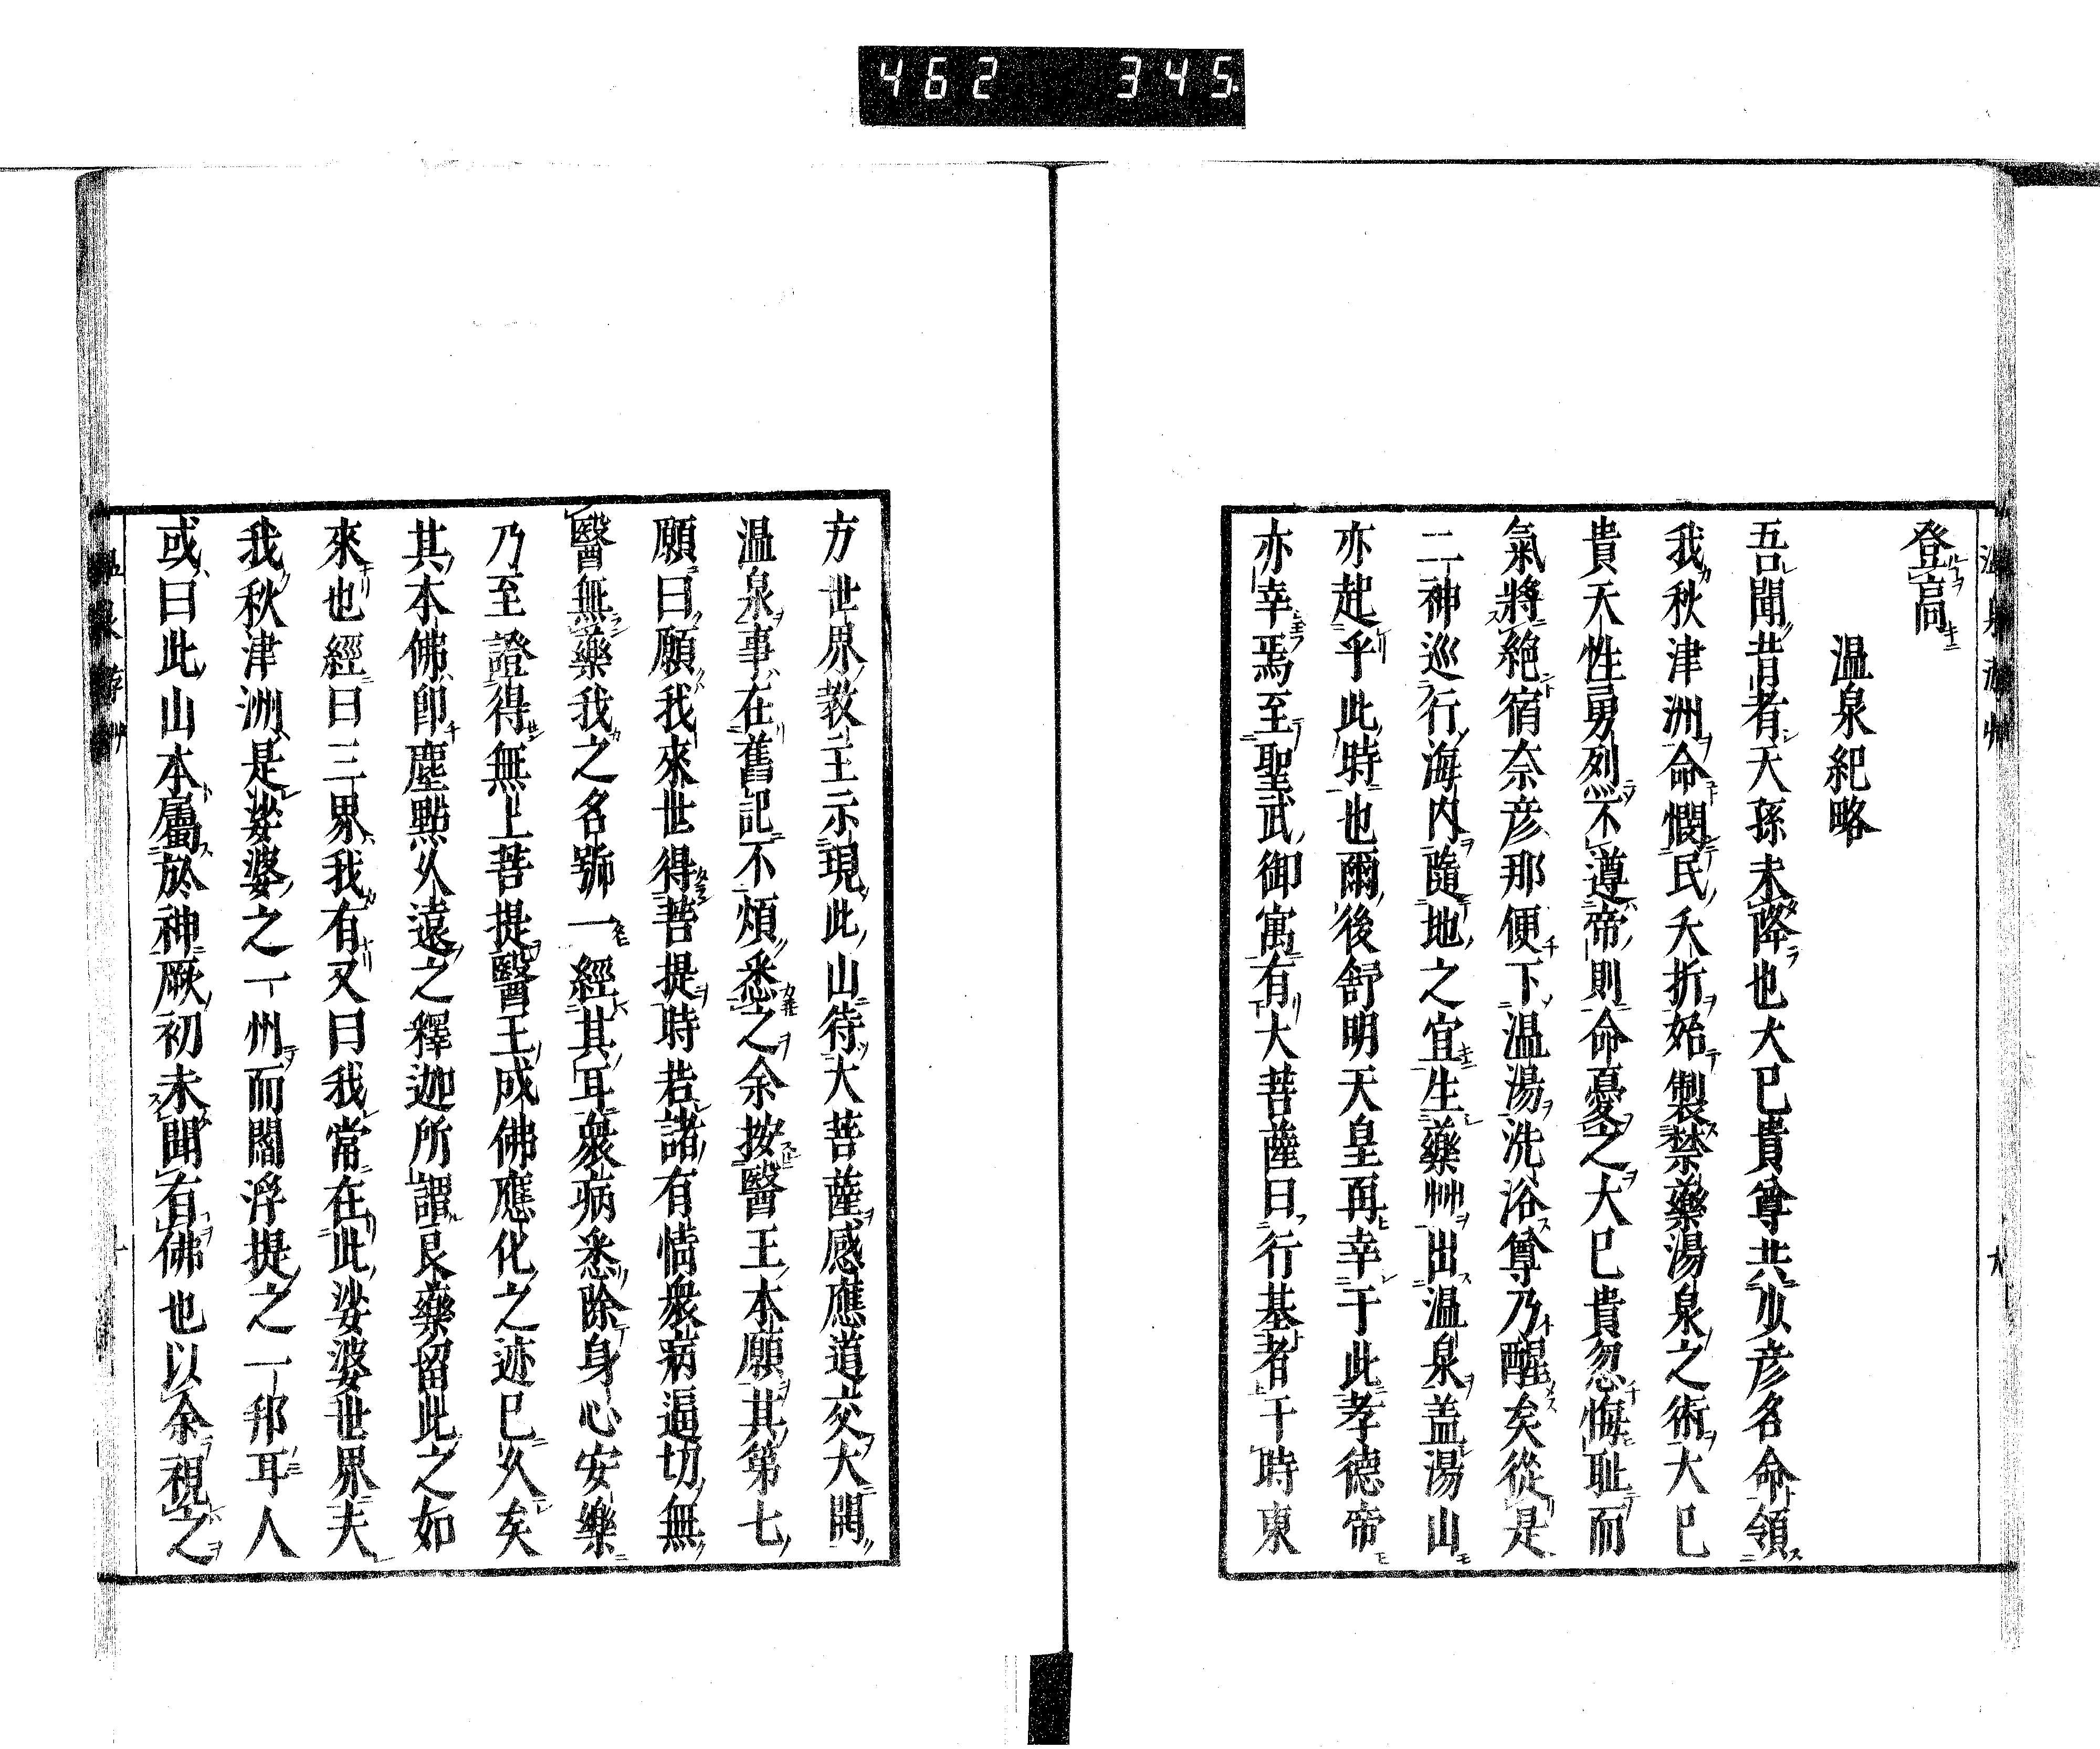 462 345
登高
温泉紀略
吾聞昔者天孫未降也大已貴尊共少彦名命領
我秋津洲命憫民夭折始製禁藥湯泉之術大已
貴天性勇烈不遵帝則命憂之大已貴忽悔耻而
氣將絶宿奈彦那便下温湯洗浴尊乃醒矣從是
二神巡行海内隨地之宜生藥艸出温泉盖湯山
亦起乎此時也爾後舒明天皇再幸于此孝德帝
亦幸焉至聖武御寓有大菩薩曰行基者于時東
方世界教主示現此山待大菩薩感應道交大開
温泉事在舊記不煩悉之余按醫王本願其第七
願曰願我來世得菩提時若諸有情衆病逼切無
醫無藥我之名號一經其耳衆病悉除身心安樂
乃至證得無上菩提醫王成佛應化之迹已久矣
其本佛卽塵點久遠之釋迦所謂良藥留此之如
來也經曰三界我有又曰我常在此娑婆世界夫
我秋津洲是娑婆之一州而閻浮提之一邦耳人
或曰此山本屬於神厥初未聞有佛也以余視之